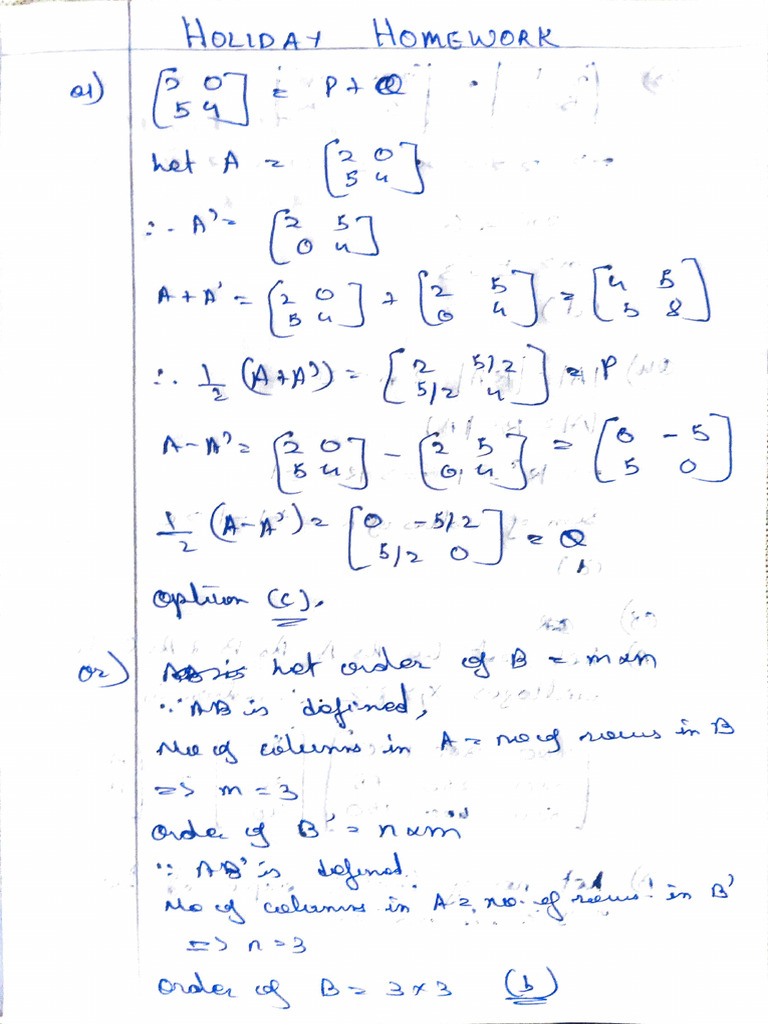 HOLIDAY HOMEWORK
Q1) [2 0 = P + Q
5 4]
Let A = [2 0
5 4]
∴ A' = [2 5
0 4]
A + A' = [2 0 + [2 5 = [4 5
5 4] 0 4] 5 8]
∴ 1/2 (A + A') = [2 5/2 = P
5/2 4]
A - A' = [2 0 - [2 5 = [0 -5
5 4] 0 4] 5 0]
1/2 (A - A') = [0 -5/2 = Q
5/2 0]
option (c).
Q2) Let order of B = m x n
∵ AB is defined,
No of columns in A = no of rows in B
=> m = 3
Order of B' = n x m
∵ AB' is defined
No of columns in A = no. of rows in B'
=> n = 3
Order of B = 3 x 3 (b)